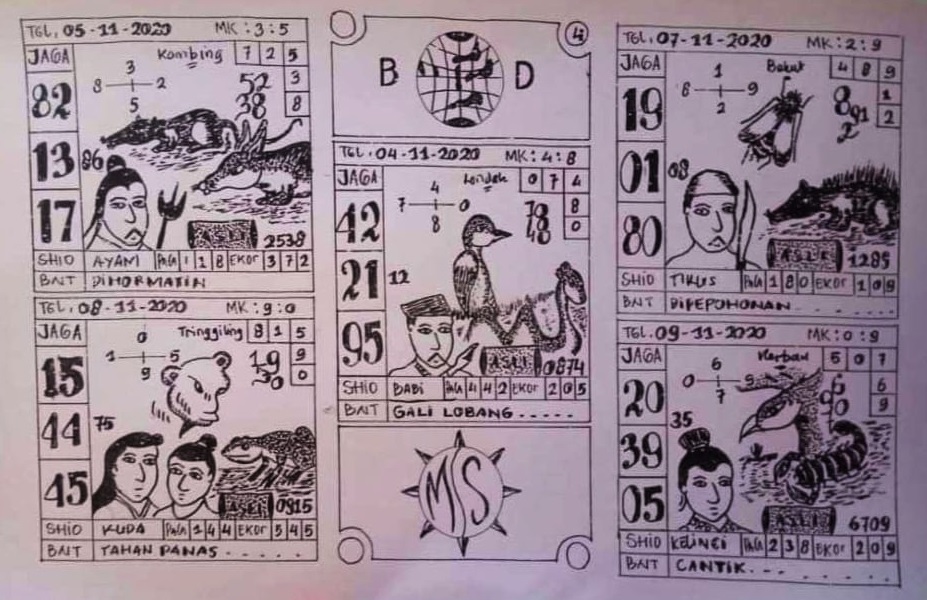 TGL. 05-11-2020 MK: 3:5
JAGA Kambing 7 2 5
3
8 2
5
52 3
38 8
82
13 86
17
ASLI 2538
SHIO AYAM PALA 1 1 8 EKOR 3 7 2
BNT DIHORMATIN
TGL. 08-11-2020 MK: 9:0
JAGA Tringgiling 8 1 5
0
1 5
9
19 9
30 0
15
44 75
45
ASLI 0915
SHIO KUDA PALA 1 4 4 EKOR 5 4 5
BNT TAHAN PANAS - . . . .
4
B D
TGL. 04-11-2020 MK: 4:8
JAGA Landak 0 7 4
4
7 0
8
78 8
48 0
42
21 12
95
ASLI 0874
SHIO BABI PALA 4 4 2 EKOR 2 0 5
BNT GALI LOBANG - - - - -
MS
TGL. 07-11-2020 MK: 2:9
JAGA 4 8 9
1
8 9
2
8 1
91 2
19
01 08
80
ASLI 1285
SHIO TIKUS PALA 1 8 0 EKOR 1 0 9
BNT DIPEPOHONAN
TGL. 09-11-2020 MK: 0:9
JAGA Kerbau 5 0 7
6
0 9
7
6 6
90 9
20
39 35
05
ASLI 6709
SHIO KELINCI PALA 2 3 8 EKOR 2 0 9
BNT CANTIK - - - . . . .